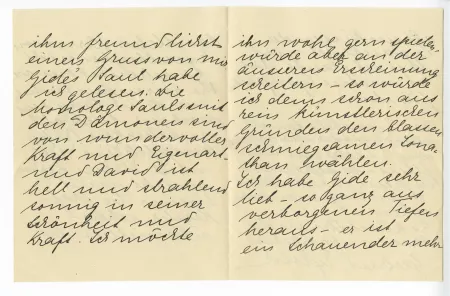 ihm freundlichst
einen Gruss von mir
Gide's Saul habe
ich gelesen. Die
Monologe Sauls mit
den Dämonen sind
von wundervoller
Kraft und Eigenart
und David ist
hell und strahlend
sonnig in seiner
Schönheit und
Kraft. Ich möchte
ihn wohl gern spielen,
würde aber an der
äusseren Erscheinung
scheitern – so würde
ich denn schon aus
rein künstlerischen
Gründen den blassen
schmiegsamen Jona-
than wählen.
Ich habe Gide sehr
lieb – so ganz aus
verborgenen Tiefen
heraus – er ist
ein Schauender mehr